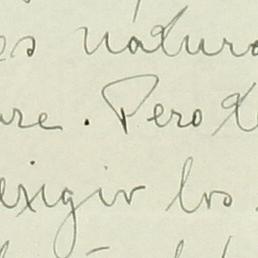 es natura
re. Pero d
exigir los